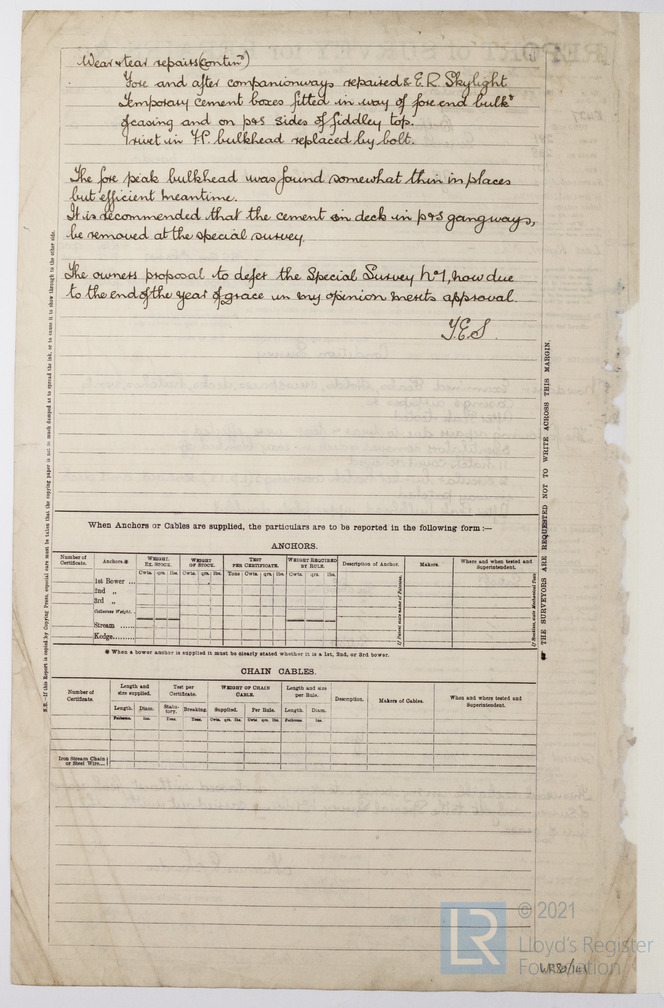 Wear & tear repairs (contind)
Fore and after companionways repaired & E.R. Skylight
Temporary cement boxes fitted in way of fore end bulkd
of casing and on p&s sides of fiddley top.
1 rivet in F.P. bulkhead replaced by bolt.
The fore peak bulkhead was found somewhat thin in places
but efficient meantime.
It is recommended that the cement on deck in p&s gangways,
be removed at the special survey.
The owners proposal to defer the Special Survey No 1, now due
to the end of the year of grace in my opinion merits approval.
When Anchors or Cables are supplied, the particulars are to be reported in the following form :—
ANCHORS.
Number of Certificate.
Anchors.*
WEIGHT. EX. STOCK.
WEIGHT OF STOCK.
TEST PER CERTIFICATE.
WEIGHT REQUIRED BY RULE.
Description of Anchor.
Makers.
Where and when tested and Superintendent.
Cwts. qrs. lbs. Cwts. qrs. lbs. Tons Cwts. qrs. lbs. Cwts. qrs. lbs.
1st Bower ...
2nd „
3rd „
Collective Weight.
Stream ......
Kedge.........
If Patent state name of Patentee.
* When a bower anchor is supplied it must be clearly stated whether it is a 1st, 2nd, or 3rd bower.
CHAIN CABLES.
Number of Certificate.
Length and size supplied.
Test per Certificate.
WEIGHT OF CHAIN CABLE.
Length and size per Rule.
Description.
Makers of Cables.
When and where tested and Superintendent.
Length. Diam. Statutory. Breaking. Supplied. Per Rule. Length. Diam.
Fathoms. Ins. Tons. Tons. Cwts. qrs. lbs. Cwts. qrs. lbs. Fathoms. Ins.
Iron Stream Chain or Steel Wire...
N.B.—If this Report is copied by Copying Press, especial care must be taken that the copying paper is not so much damped as to spread the ink, or to cause it to show through to the other side.
THE SURVEYORS ARE REQUESTED NOT TO WRITE ACROSS THIS MARGIN.
LR
© 2021
Lloyd's Register
Foundation